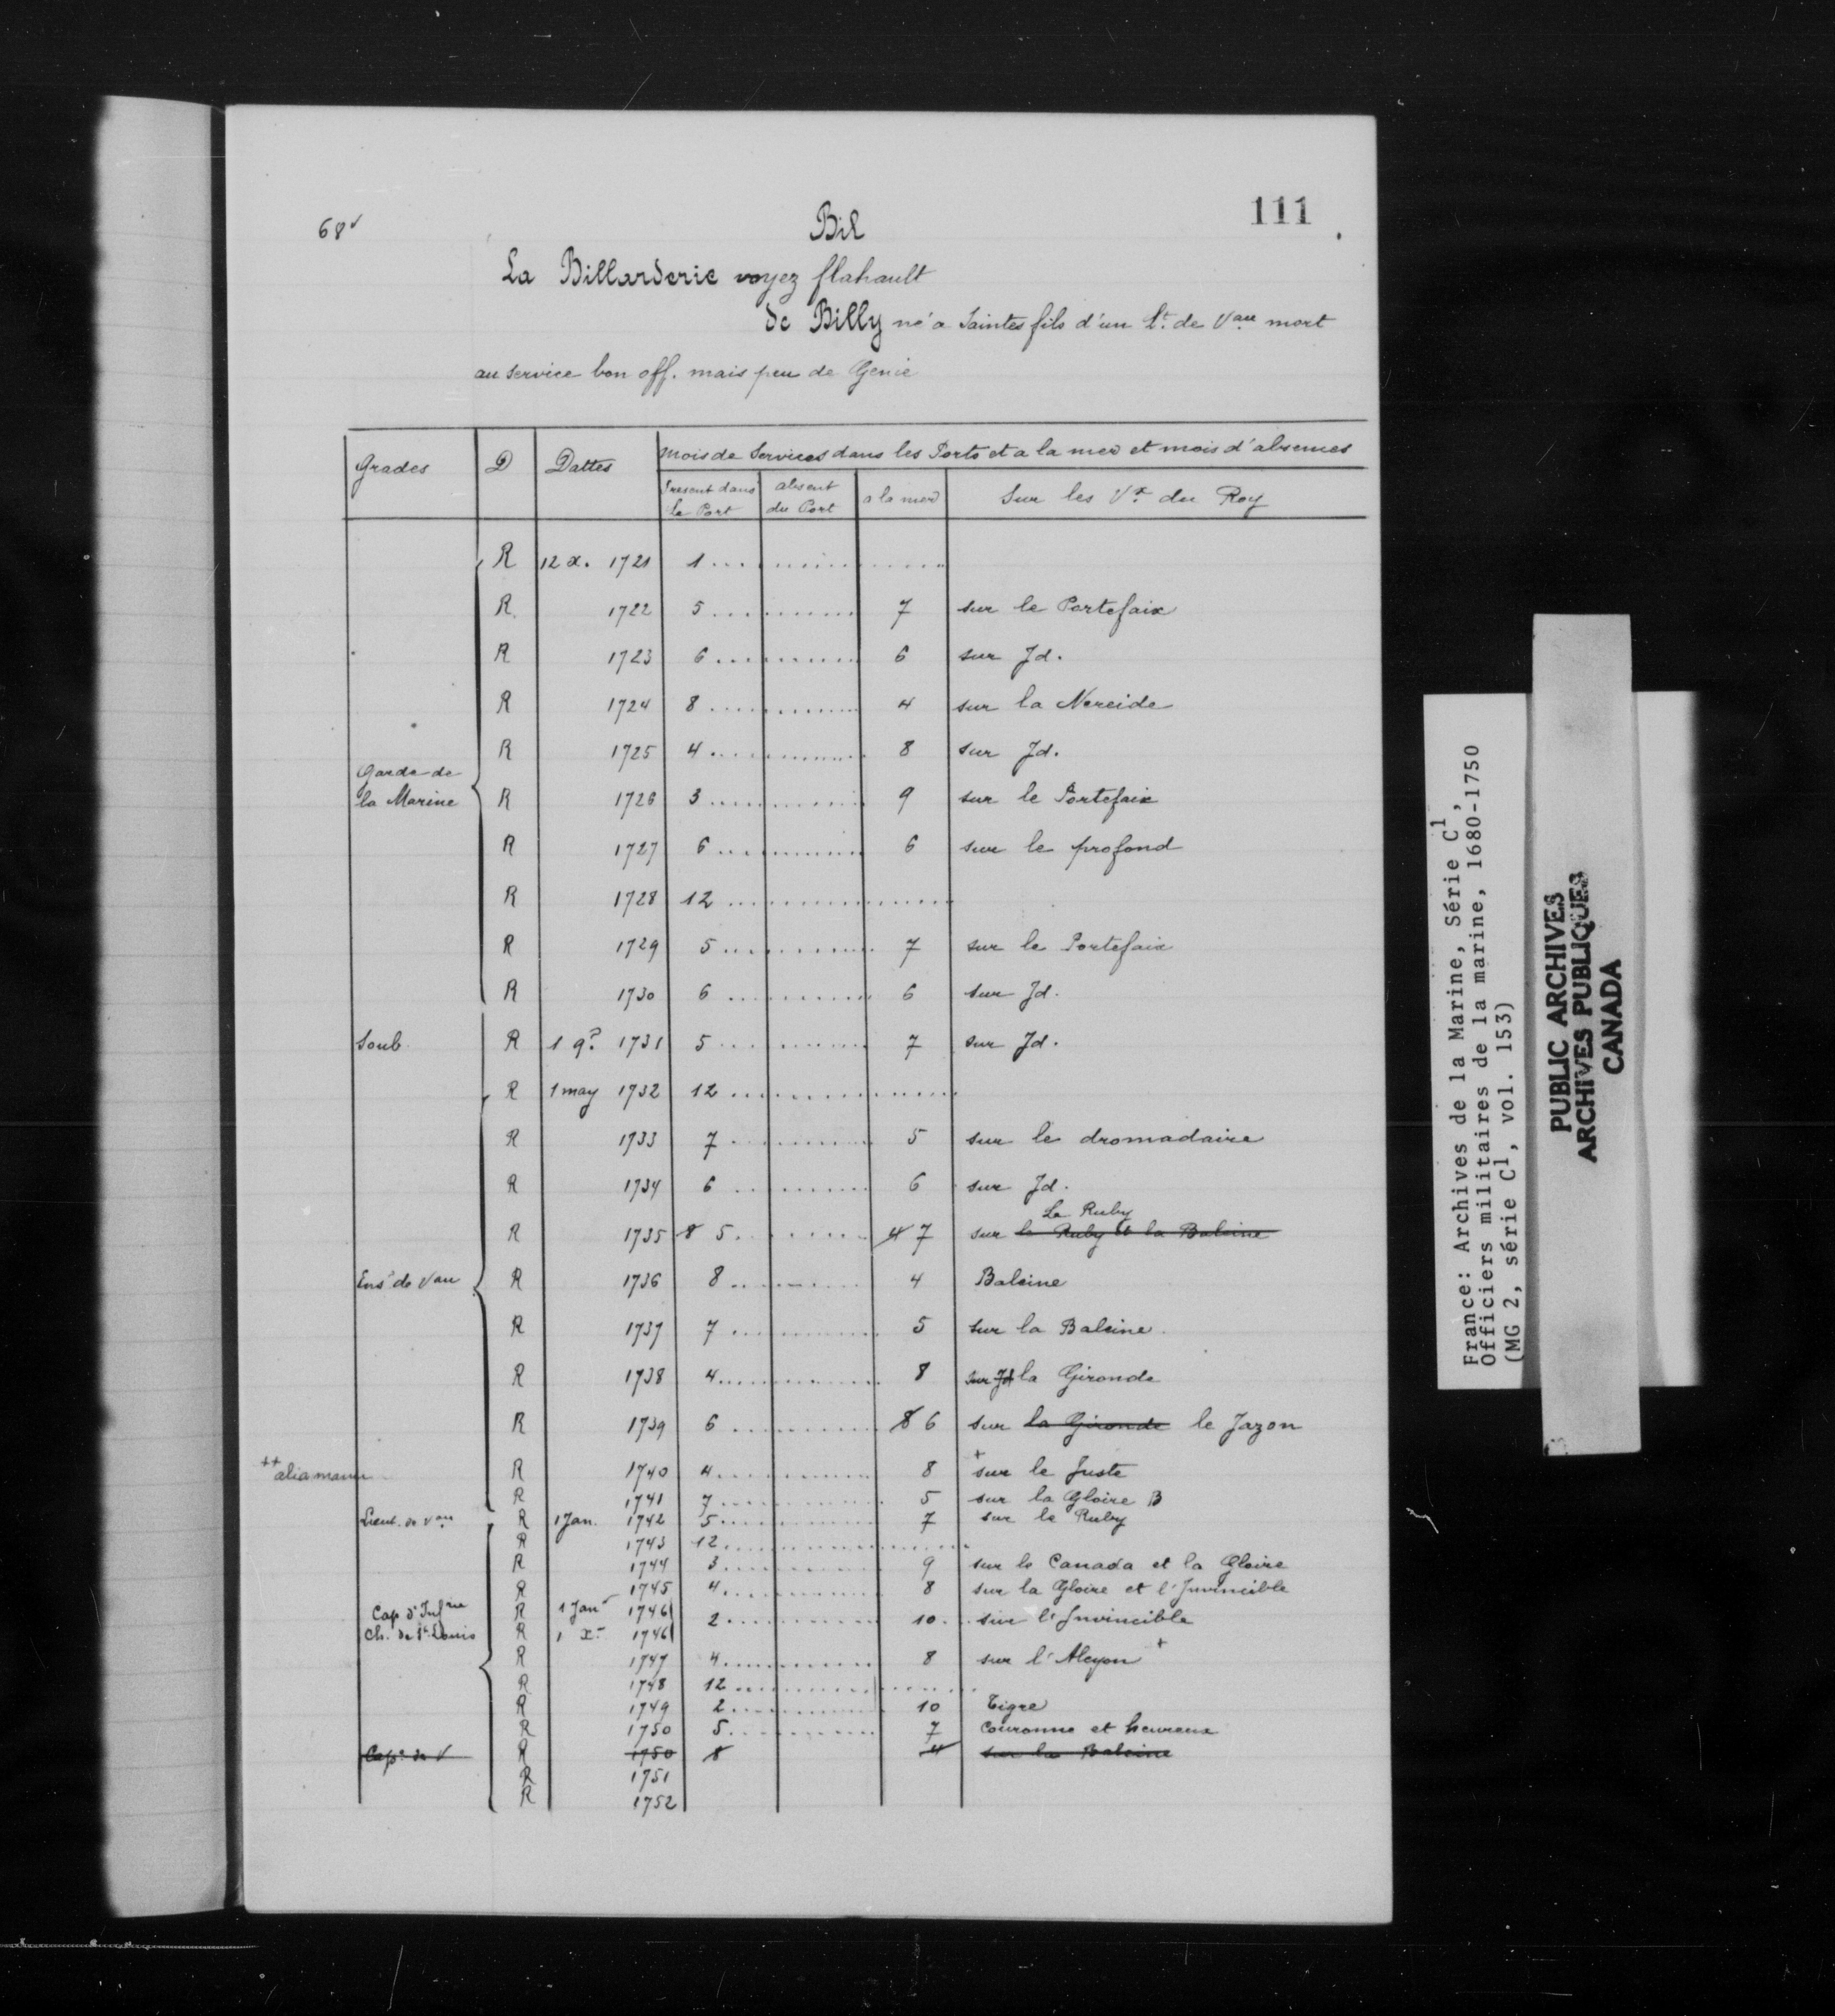 68v
Bil
111
La Billarderie voyez flahault
de Billy né a Saintes fils d'un Lt. de Vau mort
au service bon off. mais peu de Genie
Grades D Dattes Mois de Services dans les Ports et a la mer et mois d'absences
Present dans le Port absent du Port a la mer Sur les Vx du Roy
R 12 x. 1721 1
R 1722 5 7 sur le Portefaix
R 1723 6 6 sur Jd.
R 1724 8 4 sur la Nereide
R 1725 4 8 sur Jd.
Garde de
la Marine R 1726 3 9 sur le Portefaix
R 1727 6 6 sur le profond
R 1728 12
R 1729 5 7 sur le Portefaix
R 1730 6 6 sur Jd.
Soub. R 1 9? 1731 5 7 sur Jd.
R 1 may 1732 12
R 1733 7 5 sur le dromadaire
R 1734 6 6 sur Jd.
Le Ruby
R 1735 8 5 4 7 sur le Ruby et la Baleine
Ens de Vau R 1736 8 4 Baleine
R 1737 7 5 sur la Baleine.
R 1738 4 8 sur Jd la Gironde
R 1739 6 8 6 sur la Gironde le Jazon
++ alia manu R 1740 4 8 + sur le Juste
R 1741 7 5 sur la Gloire B
Lieut. de Vau R 1 Jan. 1742 5 7 sur le Ruby
R 1743 12
R 1744 3 9 sur le Canada et la Gloire
R 1745 4 8 sur la Gloire et l'Invincible
Cap d'Infrie R 1 Janr 1746
Ch. de St Louis R 1 xr 1746 2 10 sur l'Invincible
R 1747 4 8 sur l'Alcyon +
R 1748 12
R 1749 2 10 Tigre
R 1750 5 7 Couronne et heureux
Cape de V R 1750 8 4 sur la Baleine
R 1751
R 1752
France: Archives de la Marine, Série C1,
Officiers militaires de la marine, 1680-1750
(MG 2, série C1, vol. 153)
PUBLIC ARCHIVES
ARCHIVES PUBLIQUES
CANADA